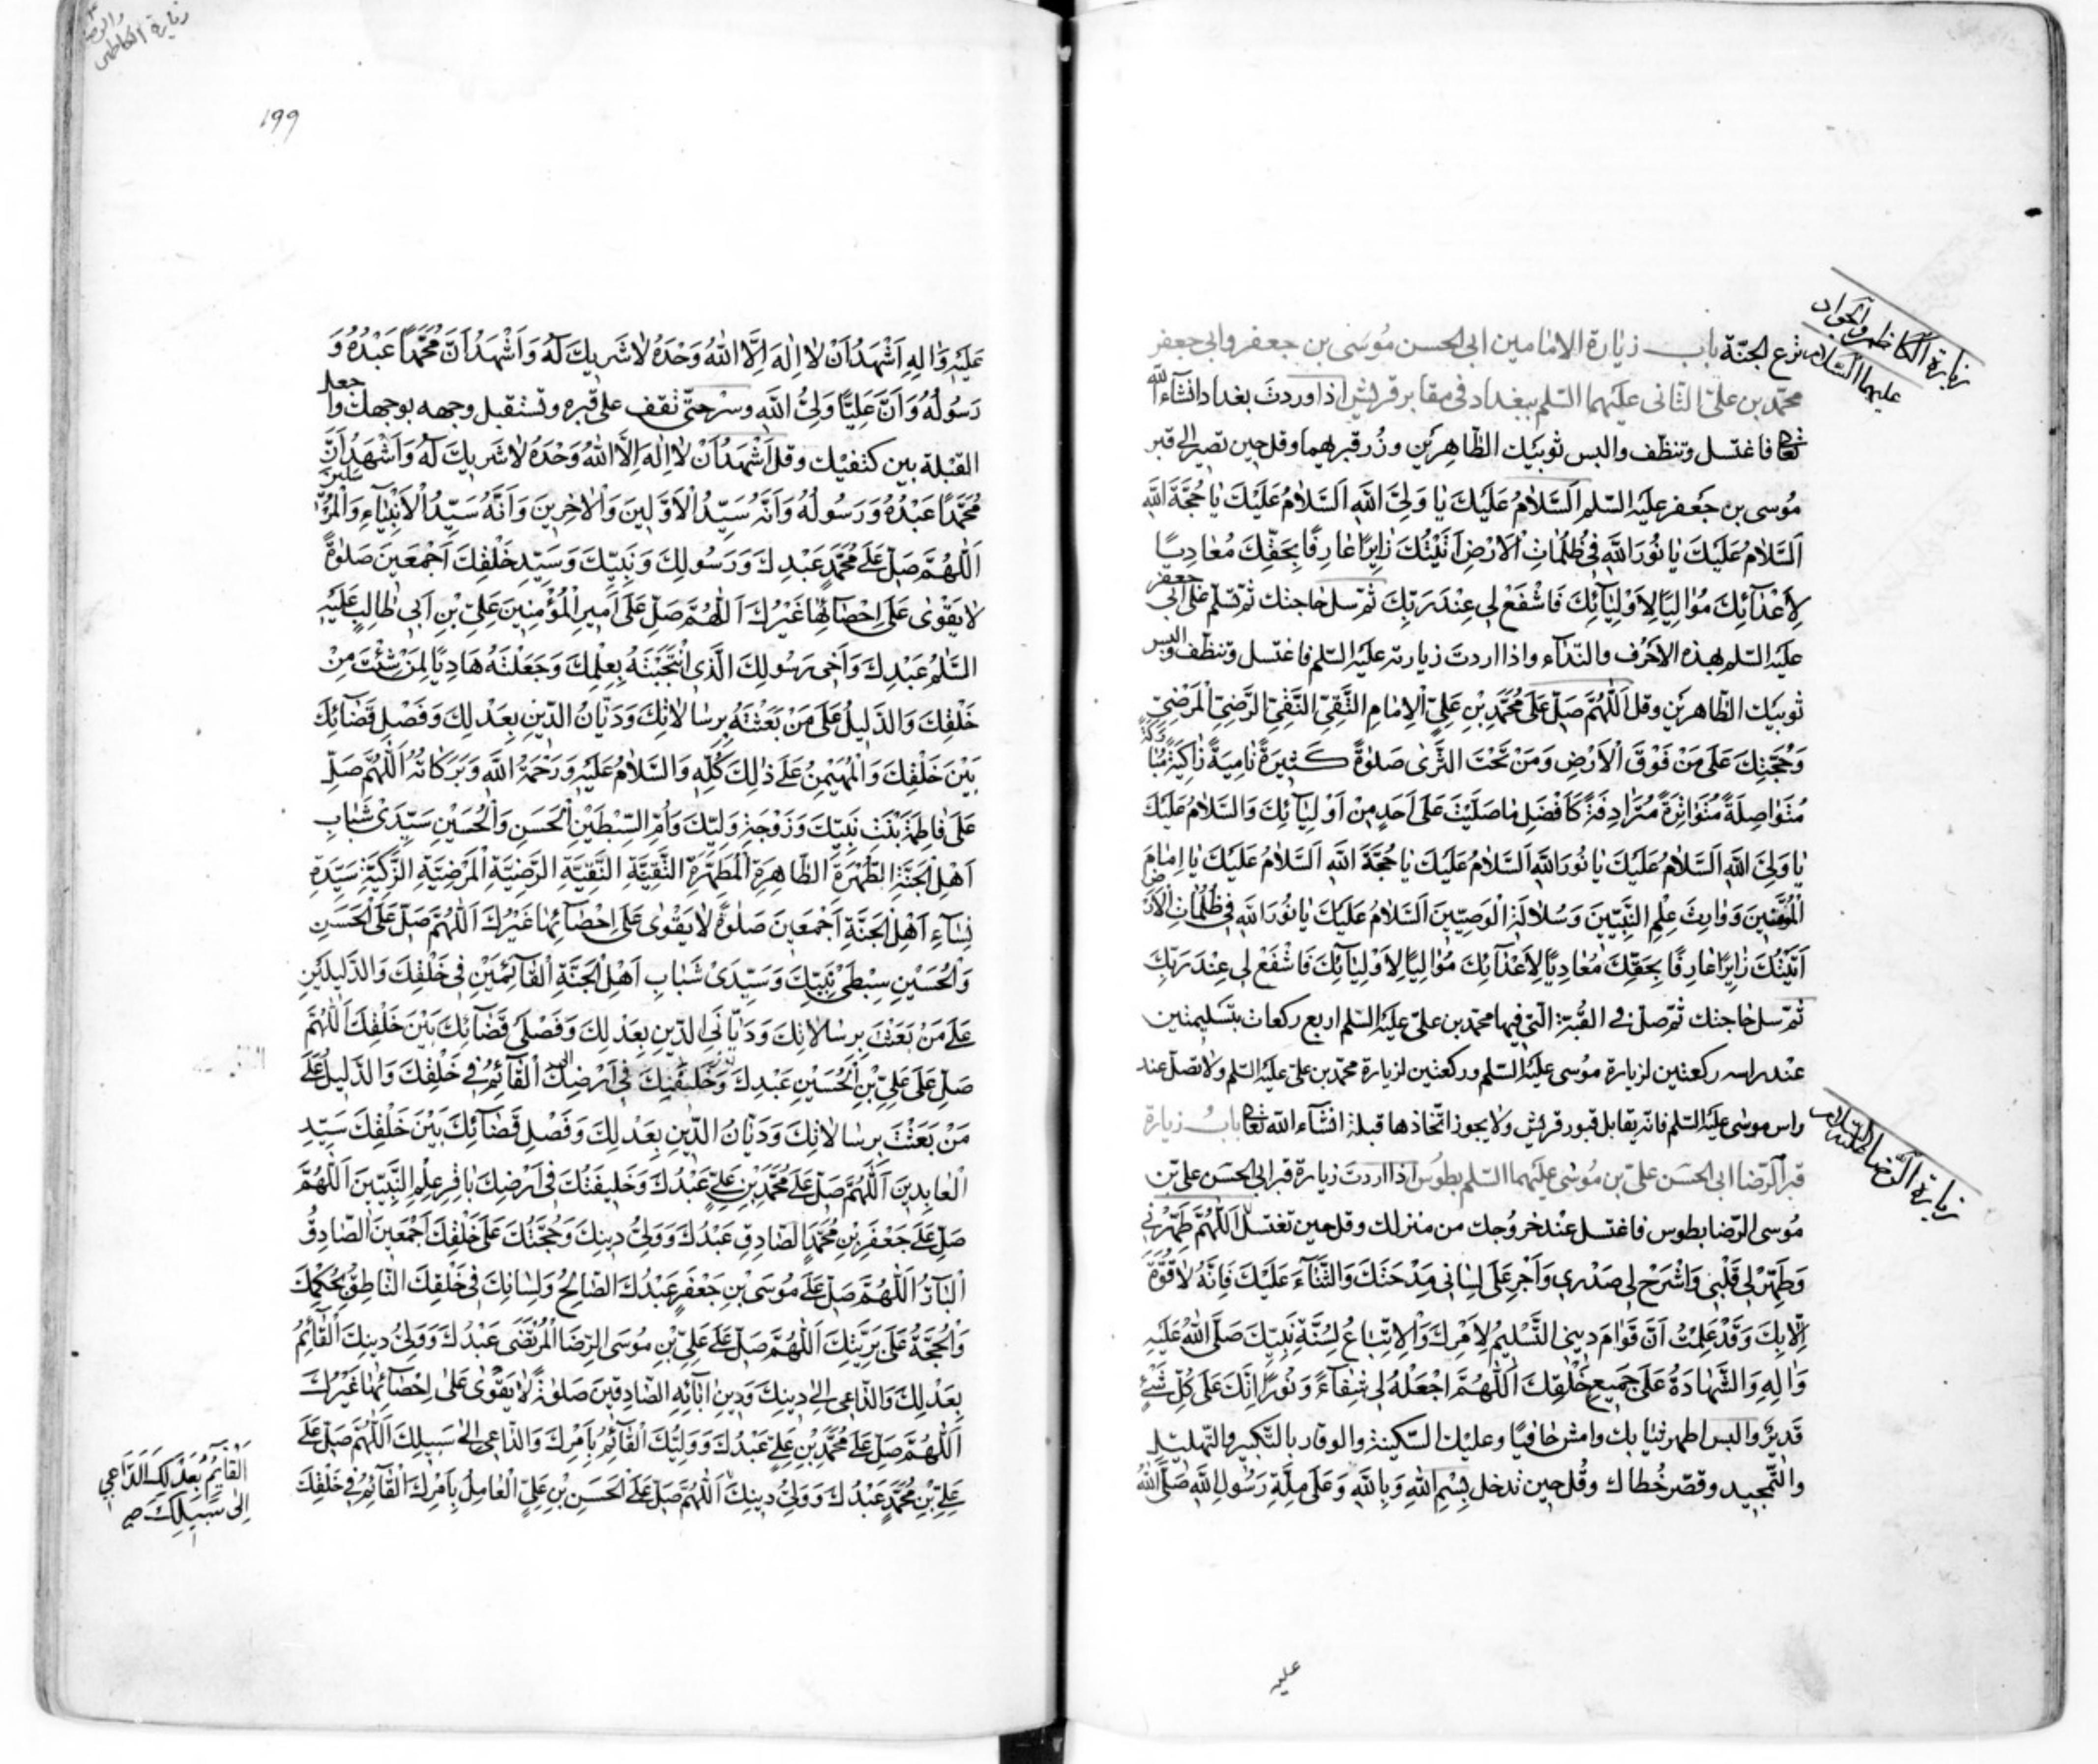 زيارة الكاظم والجواد
عليهما السلام
ترع الجنّة باب زيارة الامامين ابى الحسن مُوسَى بن جعفر وابى جعفر
محمّد بن علىّ الثانى عليهما السّلم ببغداد فى مقابر قريش اذا وردتَ بغداد انشآء الله
تعا فاغتسل وتنظّف والبس ثوبَيْك الطّاهِرَيْنِ وزُر قبريهما وقل حين تصير الى قبر
مُوسى بن جَعفر عليْه السّلم اَلسَّلامُ عَلَيْكَ يا وَلِىَّ اللهِ اَلسَّلامُ عَلَيْكَ يا حُجَّةَ اللهِ
اَلسَّلامُ عَلَيْكَ يا نُورَ اللهِ فى ظُلُماتِ الْاَرْضِ اَتَيْتُكَ زايِرًا عارِفًا بِحَقِّكَ مُعادِيًا
لِاَعْدَآئِكَ مُوالِيًا لِاَوْلِيَآئِكَ فَاشْفَعْ لى عِنْدَ رَبِّكَ ثمّ سل حاجتك ثمّ تسلّم على ابى جعفر
عليْه السّلم بهذه الاحرُف والنّدآء واذا اردتَ زيارته عليْه السّلم فاغتسل وتنظّف والبس
ثوبَيْك الطّاهرَيْنِ وقل اَللّهُمَّ صَلِّ عَلى مُحَمَّدِ بْنِ عَلِىٍّ الْاِمامِ التَّقِىِّ النَّقِىِّ الرَّضِىِّ الْمَرْضِىِّ
وَحُجَّتِكَ عَلى مَنْ فَوْقَ الْاَرْضِ وَمَنْ تَحْتَ الثَّرى صَلوةً كَثيرَةً نامِيَةً زاكِيَةً مُبارَكَةً
مُتَواصِلَةً مُتَواتِرَةً مُتَرادِفَةً كَاَفْضَلِ ما صَلَّيْتَ عَلى اَحَدٍ مِنْ اَوْلِيآئِكَ وَالسَّلامُ عَلَيْكَ
يا وَلِىَّ اللهِ اَلسَّلامُ عَلَيْكَ يا نُورَ اللهِ اَلسَّلامُ عَلَيْكَ يا حُجَّةَ اللهِ اَلسَّلامُ عَلَيْكَ يا اِمامَ
الْمُتَّقينَ وَوارِثَ عِلْمِ النَّبِيّينَ وَسُلالَةَ الْوَصِيّينَ اَلسَّلامُ عَلَيْكَ يا نُورَ اللهِ فى ظُلُماتِ الْاَرْضِ
اَتَيْتُكَ زايِرًا عارِفًا بِحَقِّكَ مُعادِيًا لِاَعْدآئِكَ مُوالِيًا لِاَوْلِيآئِكَ فَاشْفَعْ لى عِنْدَ رَبِّكَ
ثمّ سل حاجتك ثمّ صلّ فى القُبّة الّتى فيها محمّد بن علىّ عليْه السّلم اربع ركعات بتسليمتين
عند راسه ركعتين لزيارة مُوسى عليْه السّلم وركعتين لزيارة محمّد بن علىّ عليْه السّلم ولا تصلّ عند
راس موسٰى عليْه السّلم فانّه يقابل قبور قريْش ولا يجوز اتّخاذها قبلة انشآء الله تعا بابُ زيارة
زيارة الرّضا عليه السّلام
قبر الرّضا ابى الحسَن علىّ بن مُوسٰى عليْهما السّلم بطُوس اذا اردتَ زيارة قبر ابى الحسَن علىّ بن
مُوسى الرّضا بطوس فاغتسل عنْد خروُجك من منزلك وقل حين تغتسل اَللّهُمَّ طَهِّرْنى
وَطَهِّرْ لى قَلْبى وَاشْرَحْ لى صَدْرى وَاَجْرِ عَلى لِسانى مِدْحَتَكَ وَالثَّنآءَ عَلَيْكَ فَاِنَّهُ لا قُوَّةَ
اِلّا بِكَ وَقَدْ عَلِمْتُ اَنَّ قَوامَ دينى التَّسْليمُ لِاَمْرِكَ وَالْاِتِّباعُ لِسُنَّةِ نَبِيِّكَ صَلَّى اللهُ عَلَيْهِ
وَالِهِ وَالشَّهادَةُ عَلى جَميعِ خَلْقِكَ اَللّهُمَّ اجْعَلْهُ لى شِفآءً وَنُورًا اِنَّكَ عَلى كُلِّ شَىْءٍ
قَديرٌ والبس اطهر ثيابك وامش حافيًا وعليْك السّكينة والوقار بالتّكبير والتّهليل
والتّمجيد وقصّر خُطاك وقُل حين تدخل بِسْمِ اللهِ وَبِاللهِ وَعَلى مِلَّةِ رَسُولِ اللهِ صَلَّى اللهُ
عليه
زيارة الكاظمى
والرضا
١٩٩
عَلَيْهِ وَالِهِ اَشْهَدُ اَنْ لا اِلهَ اِلَّا اللهُ وَحْدَهُ لا شَريكَ لَهُ وَاَشْهَدُ اَنَّ مُحَمَّدًا عَبْدُهُ وَ
رَسُولُهُ وَاَنَّ عَلِيًّا وَلِىُّ اللهِ وسْر حتّى تقف على قبره وتستقبل وجهه بوجهك واجعل
القبْلة بين كتفيْك وقل اَشْهَدُ اَنْ لا اِلهَ اِلَّا اللهُ وَحْدَهُ لا شَريكَ لَهُ وَاَشْهَدُ اَنَّ
مُحَمَّدًا عَبْدُهُ وَرَسُولُهُ وَاَنَّهُ سَيِّدُ الْاَوَّلينَ وَالْاخِرينَ وَاَنَّهُ سَيِّدُ الْاَنْبِيآءِ وَالْمُرْسَلينَ
اَللّهُمَّ صَلِّ عَلى مُحَمَّدٍ عَبْدِكَ وَرَسُولِكَ وَنَبِيِّكَ وَسَيِّدِ خَلْقِكَ اَجْمَعينَ صَلوةً
لا يَقْوى عَلى اِحْصآئِها غَيْرُكَ اَللّهُمَّ صَلِّ عَلى اَميرِ الْمُؤْمِنينَ عَلِىِّ بْنِ اَبى طالِبٍ عَلَيْهِ
السَّلمُ عَبْدِكَ وَاَخى رَسُولِكَ الَّذى انْتَجَبْتَهُ بِعِلْمِكَ وَجَعَلْتَهُ هادِيًا لِمَنْ شِئْتَ مِنْ
خَلْقِكَ وَالدَّليلُ عَلى مَنْ بَعَثْتَهُ بِرِسالاتِكَ وَدَيّانُ الدّينِ بِعَدْلِكَ وَفَصْلِ قَضآئِكَ
بَيْنَ خَلْقِكَ وَالْمُهَيْمِنُ عَلى ذلِكَ كُلِّهِ وَالسَّلامُ عَلَيْهِ وَرَحْمَةُ اللهِ وَبَرَكاتُهُ اَللّهُمَّ صَلِّ
عَلى فاطِمَةَ بِنْتِ نَبِيِّكَ وَزَوْجَةِ وَلِيِّكَ وَاُمِّ السِّبْطَيْنِ الْحَسَنِ وَالْحُسَيْنِ سَيِّدَىْ شَبابِ
اَهْلِ الْجَنَّةِ الطُّهْرَةِ الطّاهِرَةِ الْمُطَهَّرَةِ التَّقِيَّةِ النَّقِيَّةِ الرَّضِيَّةِ الْمَرْضِيَّةِ الزَّكِيَّةِ سَيِّدَةِ
نِسآءِ اَهْلِ الْجَنَّةِ اَجْمَعينَ صَلوةً لا يَقْوى عَلى اِحْصآئِها غَيْرُكَ اَللّهُمَّ صَلِّ عَلَى الْحَسَنِ
وَالْحُسَيْنِ سِبْطَىْ نَبِيِّكَ وَسَيِّدَىْ شَبابِ اَهْلِ الْجَنَّةِ الْقآئِمَيْنِ فى خَلْقِكَ وَالدَّليلَيْنِ
عَلى مَنْ بَعَثْتَ بِرِسالاتِكَ وَدَيّانَىِ الدّينِ بِعَدْلِكَ وَفَصْلَىْ قَضآئِكَ بَيْنَ خَلْقِكَ اَللّهُمَّ
صَلِّ عَلى عَلِىِّ بْنِ الْحُسَيْنِ عَبْدِكَ وَخَليفَتِكَ فى اَرْضِكَ الْقآئِمُ فى خَلْقِكَ وَالدَّليلُ عَلى
مَنْ بَعَثْتَ بِرِسالاتِكَ وَدَيّانُ الدّينِ بِعَدْلِكَ وَفَصْلِ قَضآئِكَ بَيْنَ خَلْقِكَ سَيِّدِ
الْعابِدينَ اَللّهُمَّ صَلِّ عَلى مُحَمَّدِ بْنِ عَلِىٍّ عَبْدُكَ وَخَليفَتُكَ فى اَرْضِكَ باقِرِ عِلْمِ النَّبِيّينَ اَللّهُمَّ
صَلِّ عَلى جَعْفَرِ بْنِ مُحَمَّدٍ الصّادِقِ عَبْدُكَ وَوَلِىُّ دينِكَ وَحُجَّتُكَ عَلى خَلْقِكَ اَجْمَعينَ الصّادِقُ
الْبآرُّ اَللّهُمَّ صَلِّ عَلى مُوسَى بْنِ جَعْفَرٍ عَبْدُكَ الصّالِحُ وَلِسانِكَ فى خَلْقِكَ النّاطِقُ بِحُكْمِكَ
وَالْحُجَّةُ عَلى بَرِيَّتِكَ اَللّهُمَّ صَلِّ عَلى عَلِىِّ بْنِ مُوسَى الرِّضَا الْمُرْتَضى عَبْدُكَ وَوَلِىُّ دينِكَ الْقآئِمُ
بِعَدْلِكَ وَالدّاعى اِلى دينِكَ وَدينِ ابآئِهِ الصّادِقينَ صَلوةً لا يَقْوى عَلى اِحْصآئِها غَيْرُكَ
اَللّهُمَّ صَلِّ عَلى مُحَمَّدِ بْنِ عَلِىٍّ عَبْدُكَ وَوَلِيِّكَ الْقآئِمُ بِاَمْرِكَ وَالدّاعى اِلى سَبيلِكَ اَللّهُمَّ صَلِّ عَلى
عَلِىِّ بْنِ مُحَمَّدٍ عَبْدُكَ وَوَلِىُّ دينِكَ اَللّهُمَّ صَلِّ عَلَى الْحَسَنِ بْنِ عَلِىٍّ الْعامِلُ بِاَمْرِكَ الْقآئِمُ فى خَلْقِكَ
اَلْقآئِمُ بِعَدْلِكَ الدّاعى
اِلى سَبيلِكَ صح